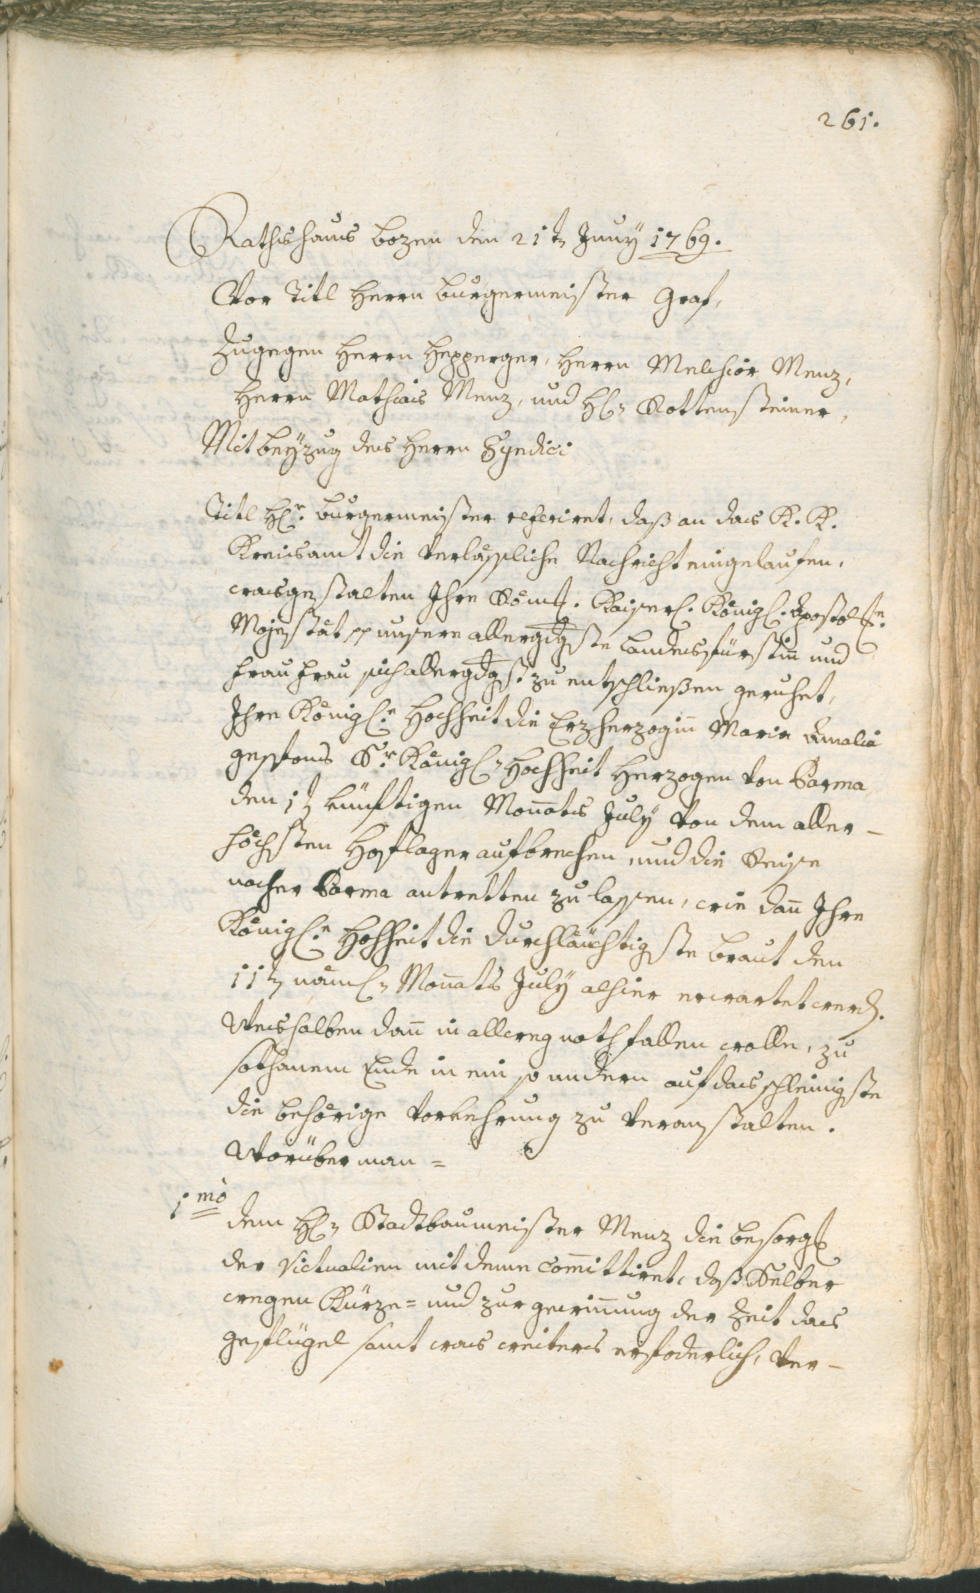 261.
Rathshaus Bozen den 21t Juny 1769.
Vor Titl Herrn Burgermeister Graf,
Zugegen Herrn Hepperger, Herrn Melchior Menz,
Herrn Mathias Menz, und H: Rottensteiner,
Mit beÿzug des Herrn Syndici
Titl H:r Burgermeister referiret, daß an das K. K.
Kreisamt die verläßliche Nachricht eingelaufen,
wasgestalten Ihre Röm: Kaiserl. Königl. Apostol:e
Majestät pp unsere allergdgste Landesfürstin̄ und
Frau Frau sich allergdgst zu entschließen geruhet,
Ihre Königl:e Hochheit die Erzherzogin̄ Maria Amalia
gespons Sr Königl: Hochheit Herzogen von Parma
den 1t künftigen Monats July von dem aller-
höchsten Hoflager aufbrechen, und die Reise
nacher Parma antretten zu lassen, wie dan̄ Ihre
Königl:e Hochheit die Durchläuchtigste Braut den
11t näml: Monats July alhier erwartet werd.
Weshalben dan̄ in allweg noth fallen wolle, zu
sothanem Ende in ein so andern auf das schleinigste
die behörige Vorkehrung zu veranstalten.
Worüber man =
1mo
dem H: Stadtbaumeister Menz die besorg
der Victualien mit deme com̄ittiret, daß Selber
wegen Kürze= und zur gewin̄ung der Zeit das
geflügel samt was weiters erfoderlich, ver-